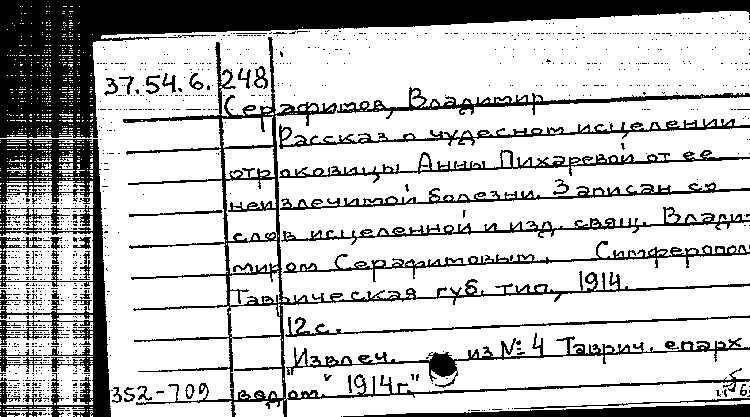 37.54.6. 248
Серафимов, Владимир
Рассказ о чудесном исцелении
отроковицы Анны Пихаревой от ее
неизлечимой болезни. Записан со
слов исцеленной и изд. свящ. Влади-
миром Серафимовым. Симферополь
Таврическая губ. тип., 1914.
12 с.
"Извлеч. из № 4 Таврич. епарх.
352-709 ведом." 1914 г."